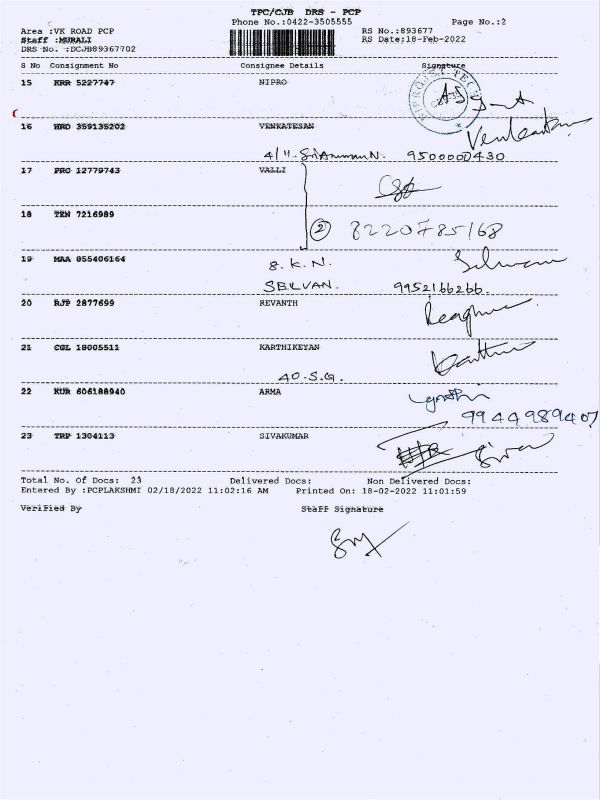 TPC/CJB DRS - PCP
Phone No.:0422-3505555 Page No.:2
Area :VK ROAD PCP RS No.:893677
Staff :MURALI RS Date;18-Feb-2022
DRS No. :DCJB89367702
S No Consignment No Consignee Details Signature
15 KRR 5227747 NIPRO
16 HRO 359135202 VENKATESAN
9500000430
17 PRC 12779743 VALLI
18 TEN 7216989
2 8220785168
19 MAA 855406164 S.K.N.
SELVAN. 9952166266.
20 RJP 2877699 REVANTH
21 CGL 18005511 KARTHIKEYAN
40-S.G.
22 KUR 606188940 ARMA
9944989407
23 TRP 1304113 SIVAKUMAR
Total No. of Docs: 23 Delivered Docs: Non Delivered Docs:
Entered By :PCPLAKSHMI 02/18/2022 11:02:16 AM Printed On: 18-02-2022 11:01:59
Verified By Staff Signature